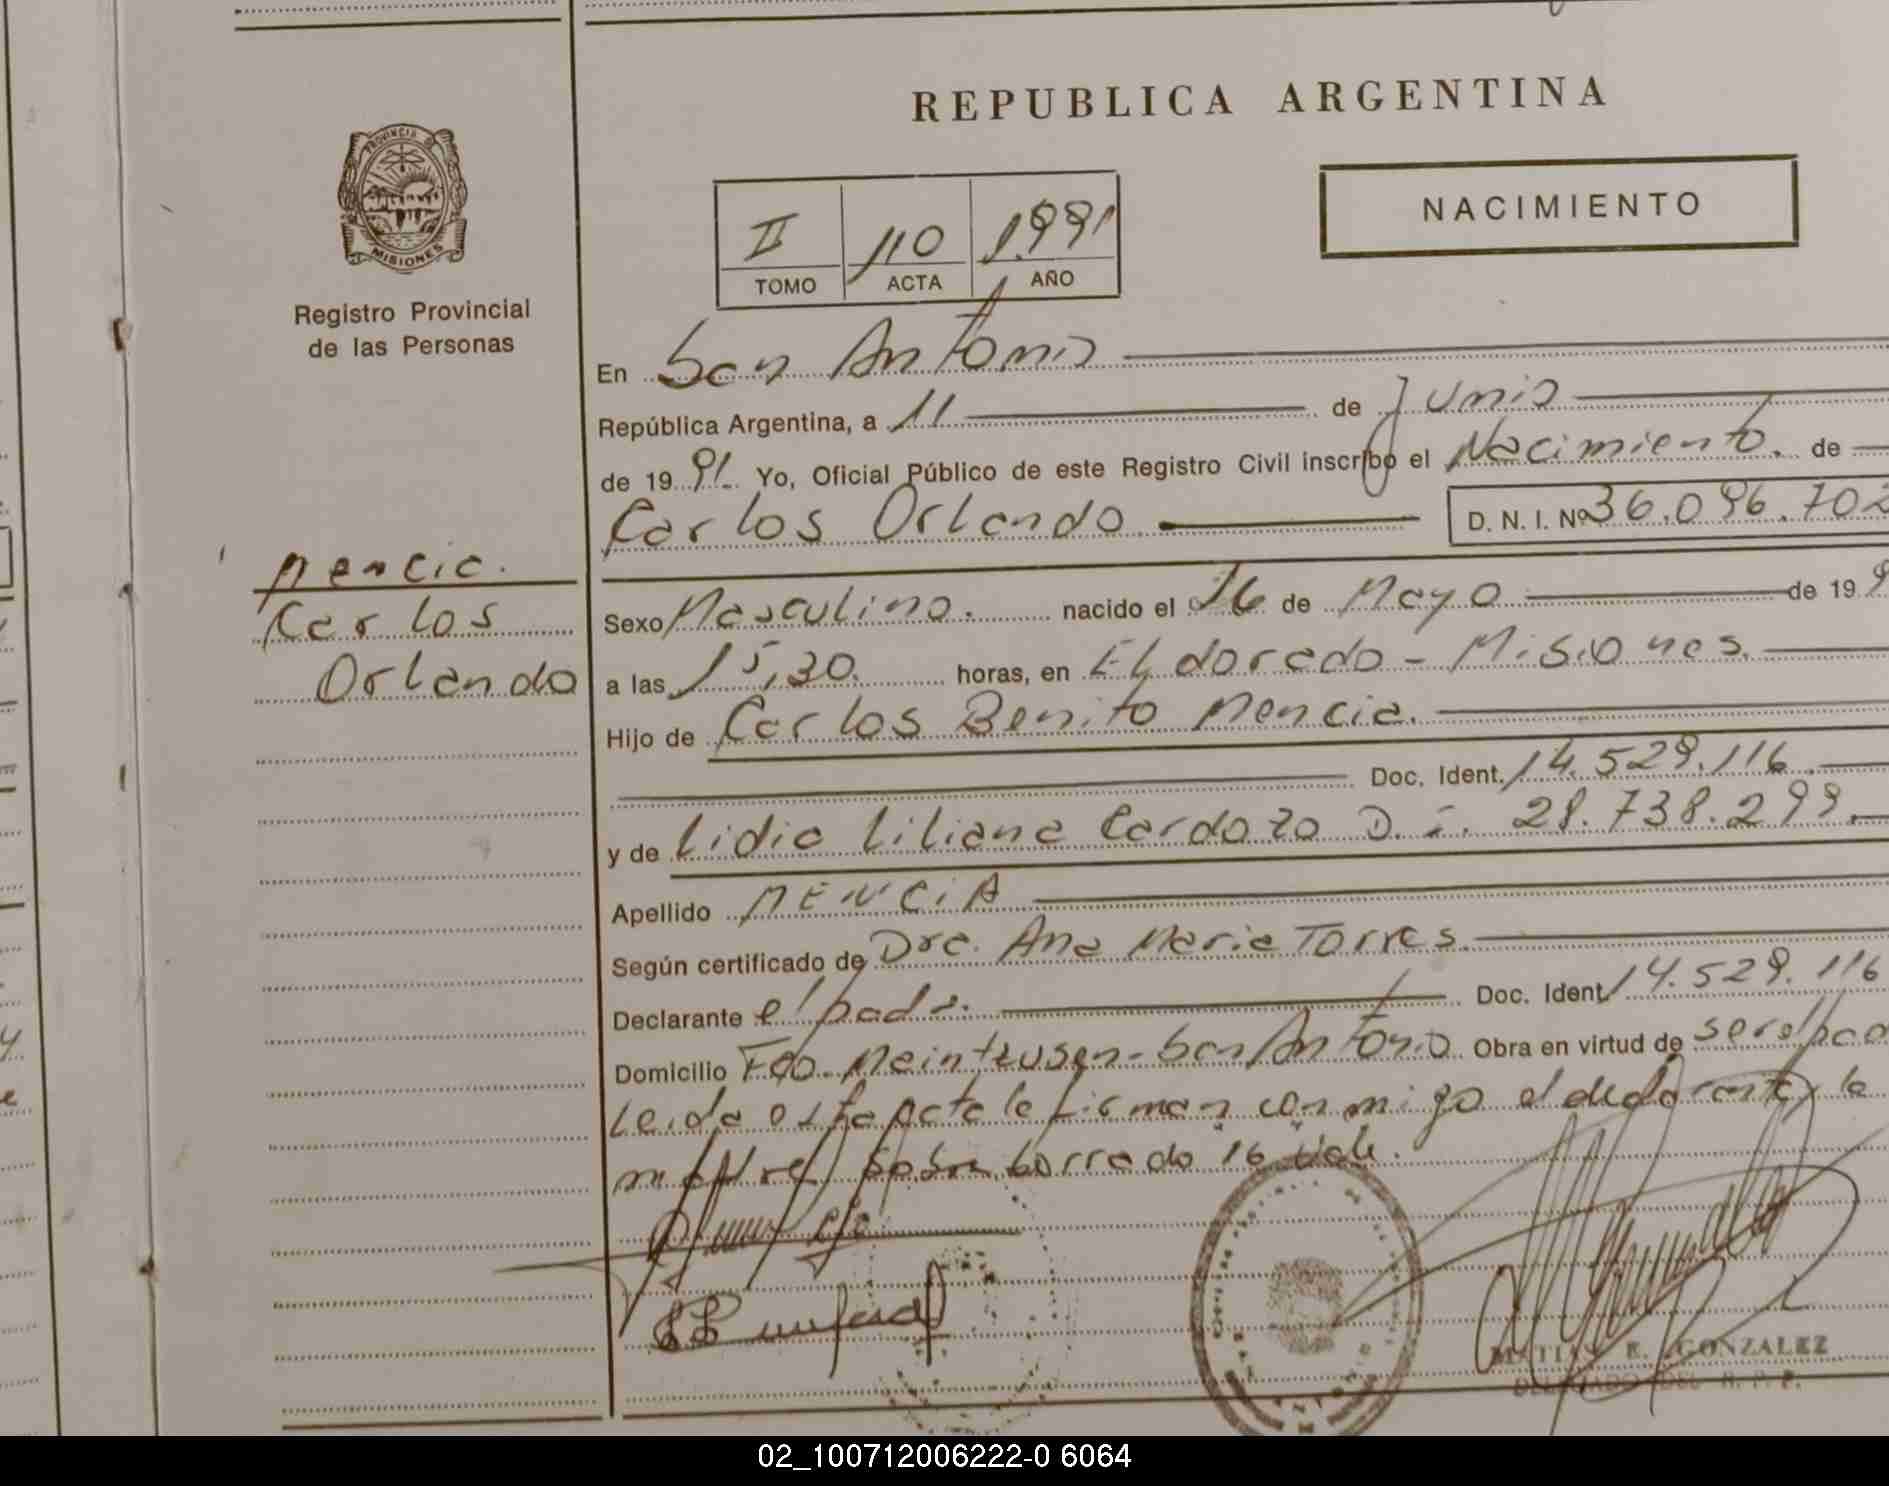 REPUBLICA ARGENTINA
PROVINCIA DE
MISIONES
Registro Provincial
de las Personas
II 110 1.991
TOMO ACTA AÑO
NACIMIENTO
En San Antonio
República Argentina, a 11 de Junio
de 1991. Yo, Oficial Público de este Registro Civil inscribo el Nacimiento. de
Carlos Orlando D. N. I. Nº 36.096.702
Mencia.
Carlos
Orlando
Sexo Masculino. nacido el 16 de Mayo de 199
a las 15,30. horas, en Eldorado - Misiones.
Hijo de Carlos Benito Mencia.
Doc. Ident. 14.529.116
y de Lidia Liliana Cardozo D. I. 28.738.299.
Apellido MENCIA
Según certificado de Dra. Ana Maria Torres.
Declarante el padre. Doc. Ident 14.529.116
Domicilio Fdo. San Antonio Obra en virtud de ser el pad
Leida esta acta la firman conmigo el declarante y la
madre sobre borrado "16" vale.
MATIAS E. GONZALEZ
DELEGADO DEL R. P. P.
02_100712006222-0 6064